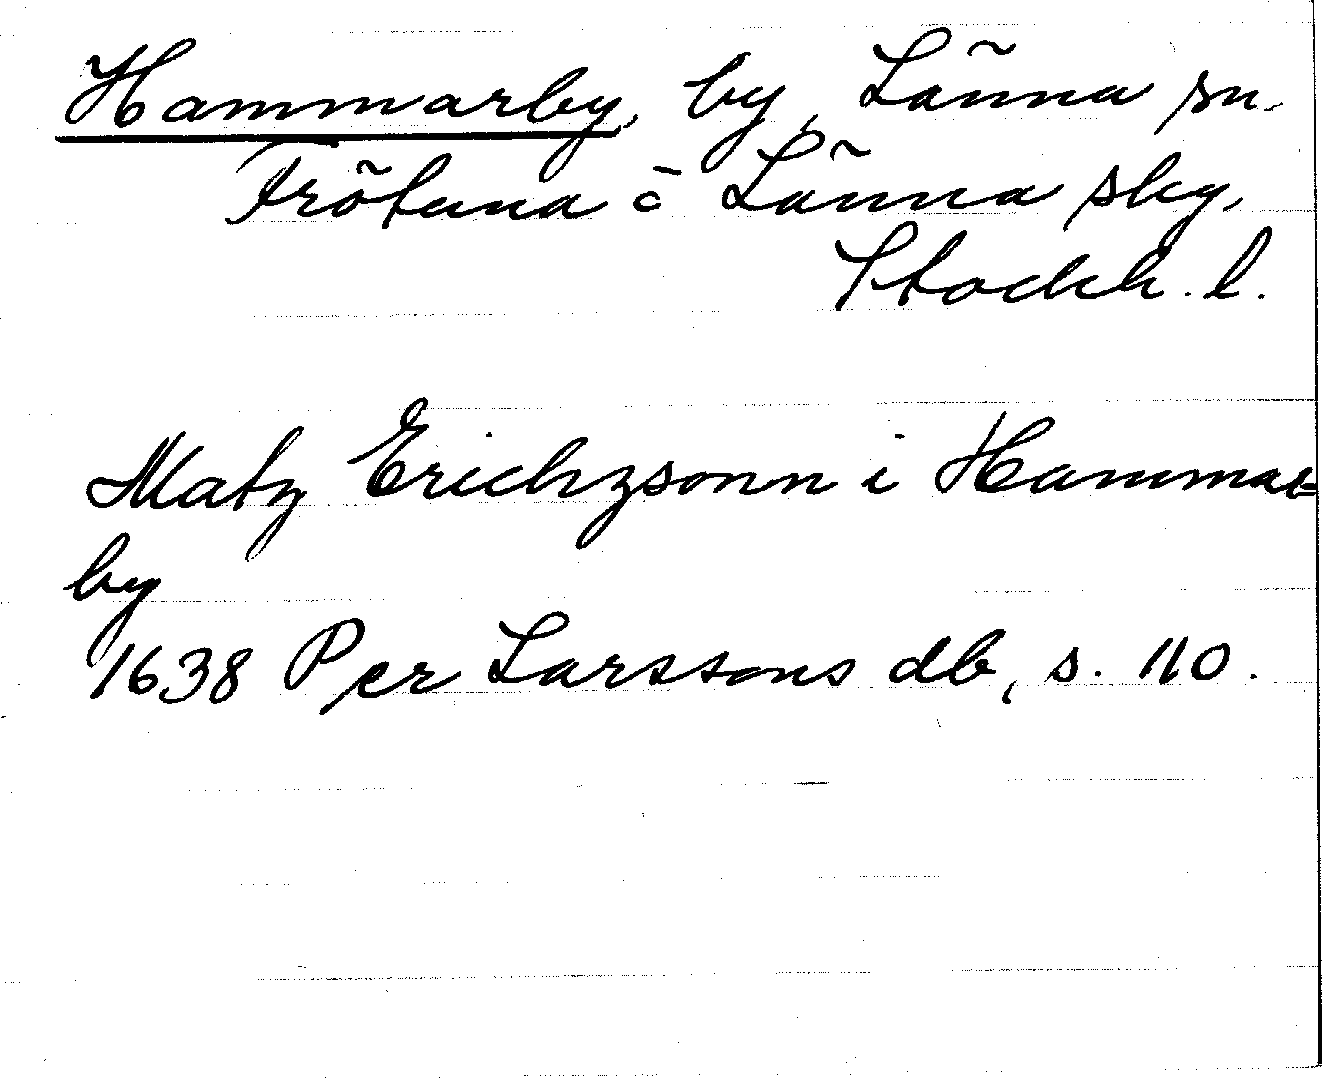 Hammarby, by, Länna sn.
Frötuna o Länna skg.
Stockh. l.
Matz Erichzsonn i Hammar=
by
1638 Per Larssons db, s. 110.